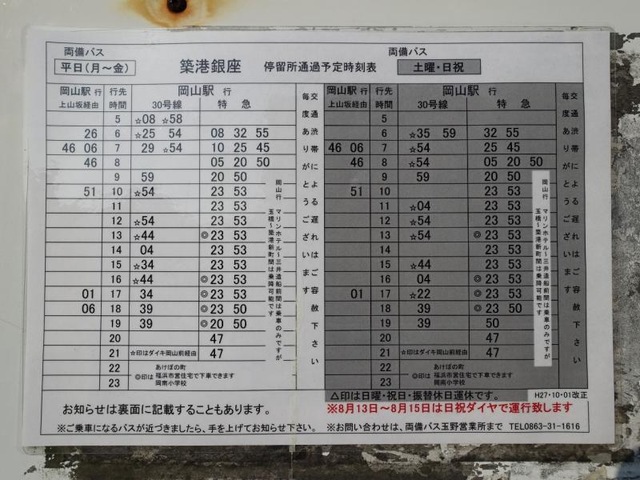 両備バス
平日(月～金)
築港銀座 停留所通過予定時刻表
両備バス
土曜・日祝
岡山駅 行
上山坂経由
行先
時間
岡山駅 行
30号線 特急
5 ☆08 ☆58
26 6 ☆25 54 08 32 55
46 06 7 29 ☆54 10 25 45
46 8 ☆54 05 20 50
9 59 20 50
51 10 ☆54 23 53
11 23 53
12 ☆54 23 53
13 ☆44 ◎23 53
14 04 23 53
15 ☆34 23 53
16 ☆44 ◎23 53
01 17 34 ◎23 53
06 18 39 ◎23 53
19 39 ◎20 50
20 47
21 ☆印はダイキ岡山前経由 47
22
23
あけぼの町
◎印は福浜市営住宅で下車できます
岡南小学校
毎度ありがとうございます。
交通渋滞による遅れはご容赦下さい
岡山行 マリンホテル～三井造船前間は乗車のみですが
玉橋～築港新町間は乗降可能です
岡山駅 行
上山坂経由
行先
時間
岡山駅 行
30号線 特急
5
6 ☆35 59 32 55
46 06 7 ☆54 25 45
8 ☆54 05 20 50
9 59 20 50
51 10 23 53
11 ☆04 23 53
12 ☆54 23 53
13 ☆54 ◎23 53
14 23 53
15 ☆44 23 53
16 04 ◎23 53
01 17 ☆22 ◎23 53
18 39 ◎23 53
19 39 50
20 47
21 ☆印はダイキ岡山前経由 47
22
23
あけぼの町
◎印は福浜市営住宅で下車できます
岡南小学校
毎度ありがとうございます。
交通渋滞による遅れはご容赦下さい
岡山行 マリンホテル～三井造船前間は乗車のみですが
玉橋～築港新町間は乗降可能です
△印は日曜・祝日・振替休日運休です。
H27・10・01改正
お知らせは裏面に記載することもあります。
※8月13日～8月15日は日祝ダイヤで運行致します
※ご乗車になるバスが近づきましたら、手を上げてお知らせ下さい。
※お問い合わせは、両備バス玉野営業所まで TEL0863-31-1616